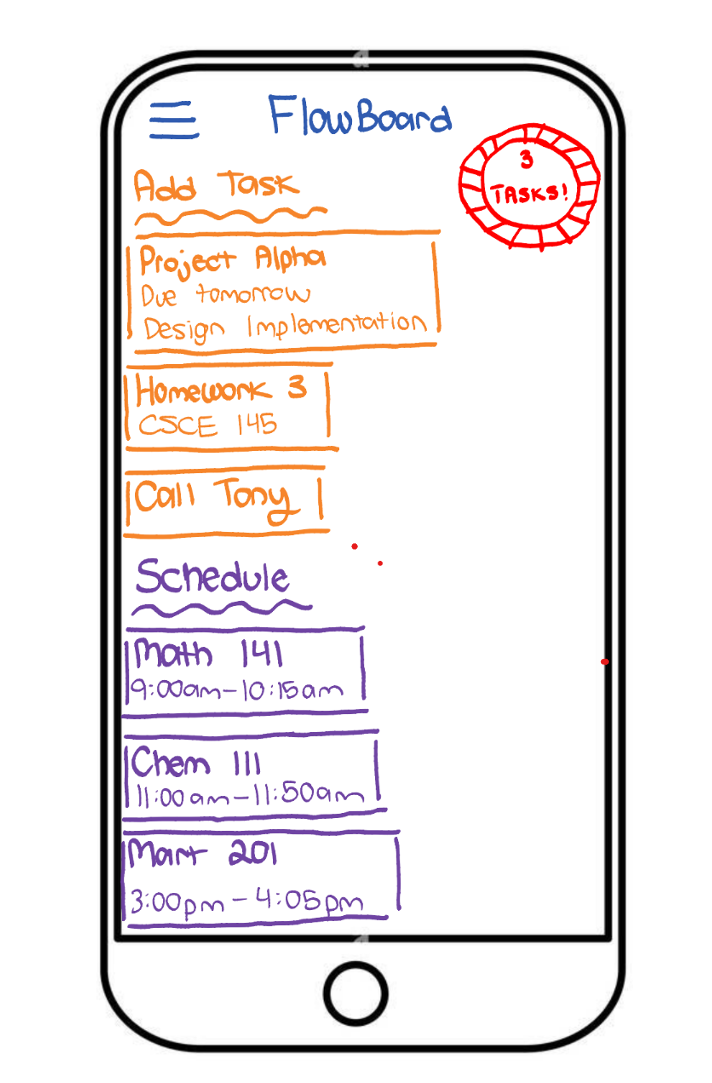 FlowBoard
3
TASKS!
Add Task
Project Alpha
Due tomorrow
Design Implementation
Homework 3
CSCE 145
Call Tony
Schedule
Math 141
9:00am-10:15am
Chem 111
11:00am-11:50am
Mart 201
3:00pm-4:05pm